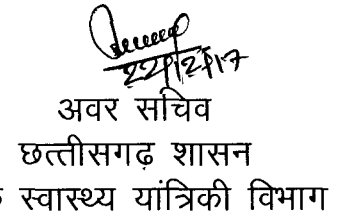 22/2/17
अवर सचिव
छत्तीसगढ़ शासन
स्वास्थ्य यांत्रिकी विभाग